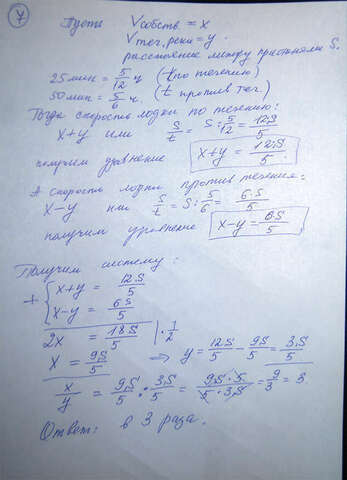 7
Пусть Vсобств = x
Vтеч. реки = y.
расстояние между пристанями S.
25 мин = 5/12 ч (t по течению)
50 мин = 5/6 ч (t против теч.)
Тогда скорость лодки по течению:
x+y или S/t = S : 5/12 = 12S/5
получим уравнение x+y = 12S/5
А скорость лодки против течения:
x-y или S/t = S : 5/6 = 6S/5
получим уравнение x-y = 6S/5
Получим систему:
+ { x+y = 12S/5
x-y = 6S/5
2x = 18S/5 | · 1/2
x = 9S/5 ⇒ y = 12S/5 - 9S/5 = 3S/5
x/y = 9S/5 : 3S/5 = 9S · 5/5 · 3S = 9/3 = 3
Ответ: в 3 раза.